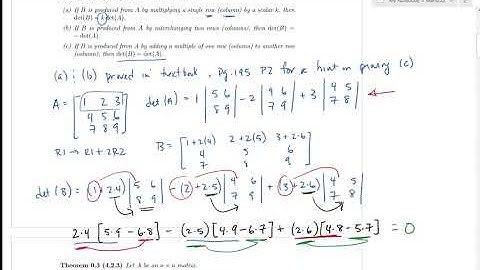 (a) If B is produced from A by multiplying a single row (column) by a scalar k, then
det(B) = k det(A).
(b) If B is produced from A by interchanging two rows (columns), then det(B) =
− det(A).
(c) If B is produced from A by adding a multiple of one row (column) to another row
(column), then det(B) = det(A).
(a) & (b) proved in textbook, Pg. 195 P2 for a hint on proving (c)
A = [1 2 3
4 5 6
7 8 9]
det(A) = 1 |5 6
8 9| - 2 |4 6
7 9| + 3 |4 5
7 8|
R1 → R1 + 2R2
B = [1+2(4) 2+2(5) 3+2·6
4 5 6
7 8 9]
det(B) = (1+2·4) |5 6
8 9| - (2+2·5) |4 6
7 9| + (3+2·6) |4 5
7 8|
2·4 [5·9 - 6·8] - (2·5)[4·9 - 6·7] + (2·6)[4·8 - 5·7] = 0
Theorem 0.3 (4.2.3) Let A be an n × n matrix.